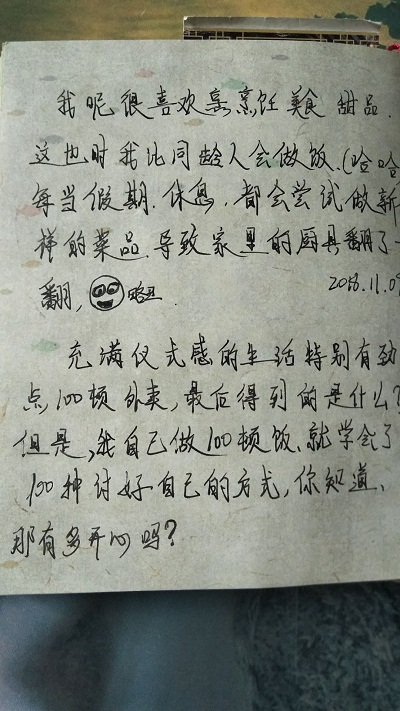 我呢很喜欢烹饪美食 甜品.
这也时我比同龄人会做饭.(哈哈
每当假期.休息.都会尝试做新
样的菜品.导致家里的厨具翻了一
翻, 略丑. 2018.11.09
充满仪式感的生活特别有劲
点,100顿外卖,最后得到的是什么?
但是,我自己做100顿饭、就学会了
100种讨好自己的方式,你知道、
那有多开心吗?